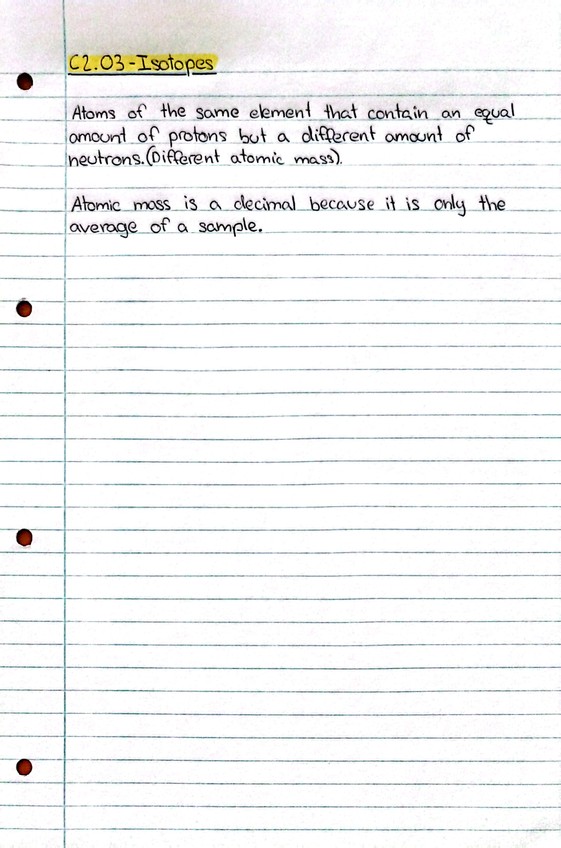 C2.03-Isotopes
Atoms of the same element that contain an equal
amount of protons but a different amount of
neutrons.(Different atomic mass).
Atomic mass is a decimal because it is only the
average of a sample.